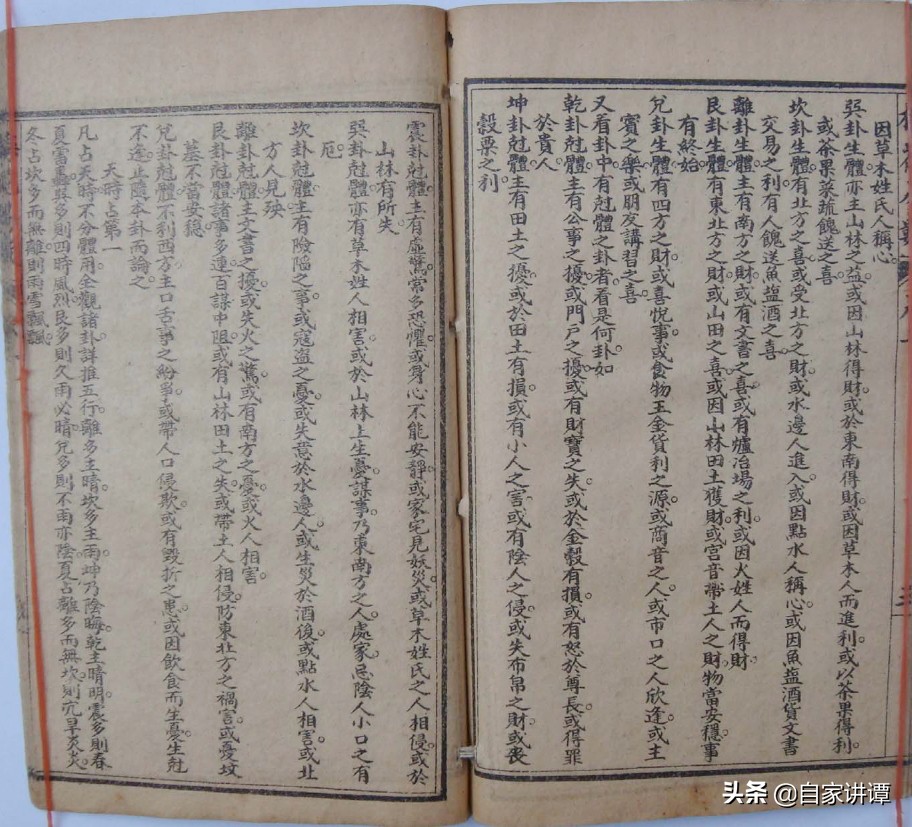 因草木姓氏人稱心。
巽卦生體亦主山林之益。或因山林得財。或於東南得財。或因草木人而進利。或以茶果得利。
或茶果菜蔬餽送之喜。
坎卦生體有北方之喜。或受北方之財。或水邊人進入。或因點水人稱心。或因魚盐酒貨文書
交易之利。有人餽送魚盐酒之喜。
離卦生體。主有南方之財。或有文書之喜。或有爐冶場之利。或因火姓人而得財。
艮卦生體有東北方之財。或山田之喜。或因山林田土獲財。或宮音帶土人之財。物當安穩。事
有終始。
兌卦生體有四方之財。或喜悅事。或食物玉金貨利之源。或商音之人。或市口之人欣逢。或主
賓之樂。或朋友講習之喜。
又看卦中有尅體之卦者。看是何卦。如
乾卦尅體。主有公事之擾。或門戶之擾。或有財寶之失。或於金穀有損。或有怒於尊長。或得罪
於貴人。
坤卦尅體。主有田土之擾。或於田土有損。或有小人之害。或有陰人之侵。或失布帛之財。或喪
穀粟之利
震卦尅體。主有虛驚。常多恐懼。或身心不能安靜。或家宅見妖災。或草木姓氏之人相侵。或於
山林有所失。
巽卦尅體。亦有草木姓人相害。或於山林上生憂。謀事。乃東南方之人。處家忌陰人小口之有
厄。
坎卦尅體。主有險陷之事。或寇盜之憂。或失意於水邊人。或生災於酒後。或點水人相害。或北
方人見殃。
離卦尅體。主文書之擾。或失火之驚。或有南方之憂。或火人相害。
艮卦尅體。諸事多違。百謀中阻。或有山林田土之失。或帶土人相侵。防東北方之禍害。或憂坟
墓不當安穩。
兌卦尅體。不利西方。主口舌事之紛爭。或帶人口侵欺。或有毀折之患。或因飲食而生憂。生尅
不逢。止隨本卦而論之。
天時占第一
凡占天時不分體用。全觀諸卦。詳推五行。離多主晴。坎多主雨。坤乃陰晦。乾主晴明。震多則春
夏雷轟。巽多則四時風烈。艮多則久雨必晴。兌多則不雨亦陰。夏占離多而無坎。則亢旱炎炎。
冬占坎多而無離。則雨雪飄飄。
头条 @自家讲谭